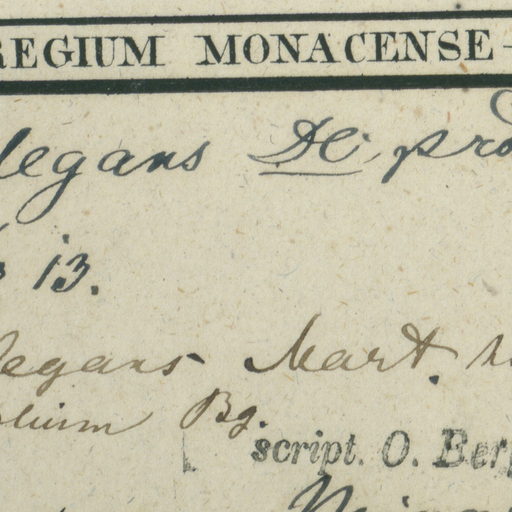 REGIUM MONACENSE
legans DC. pro
13.
legans Mart.
Bg.
script. O. Ber